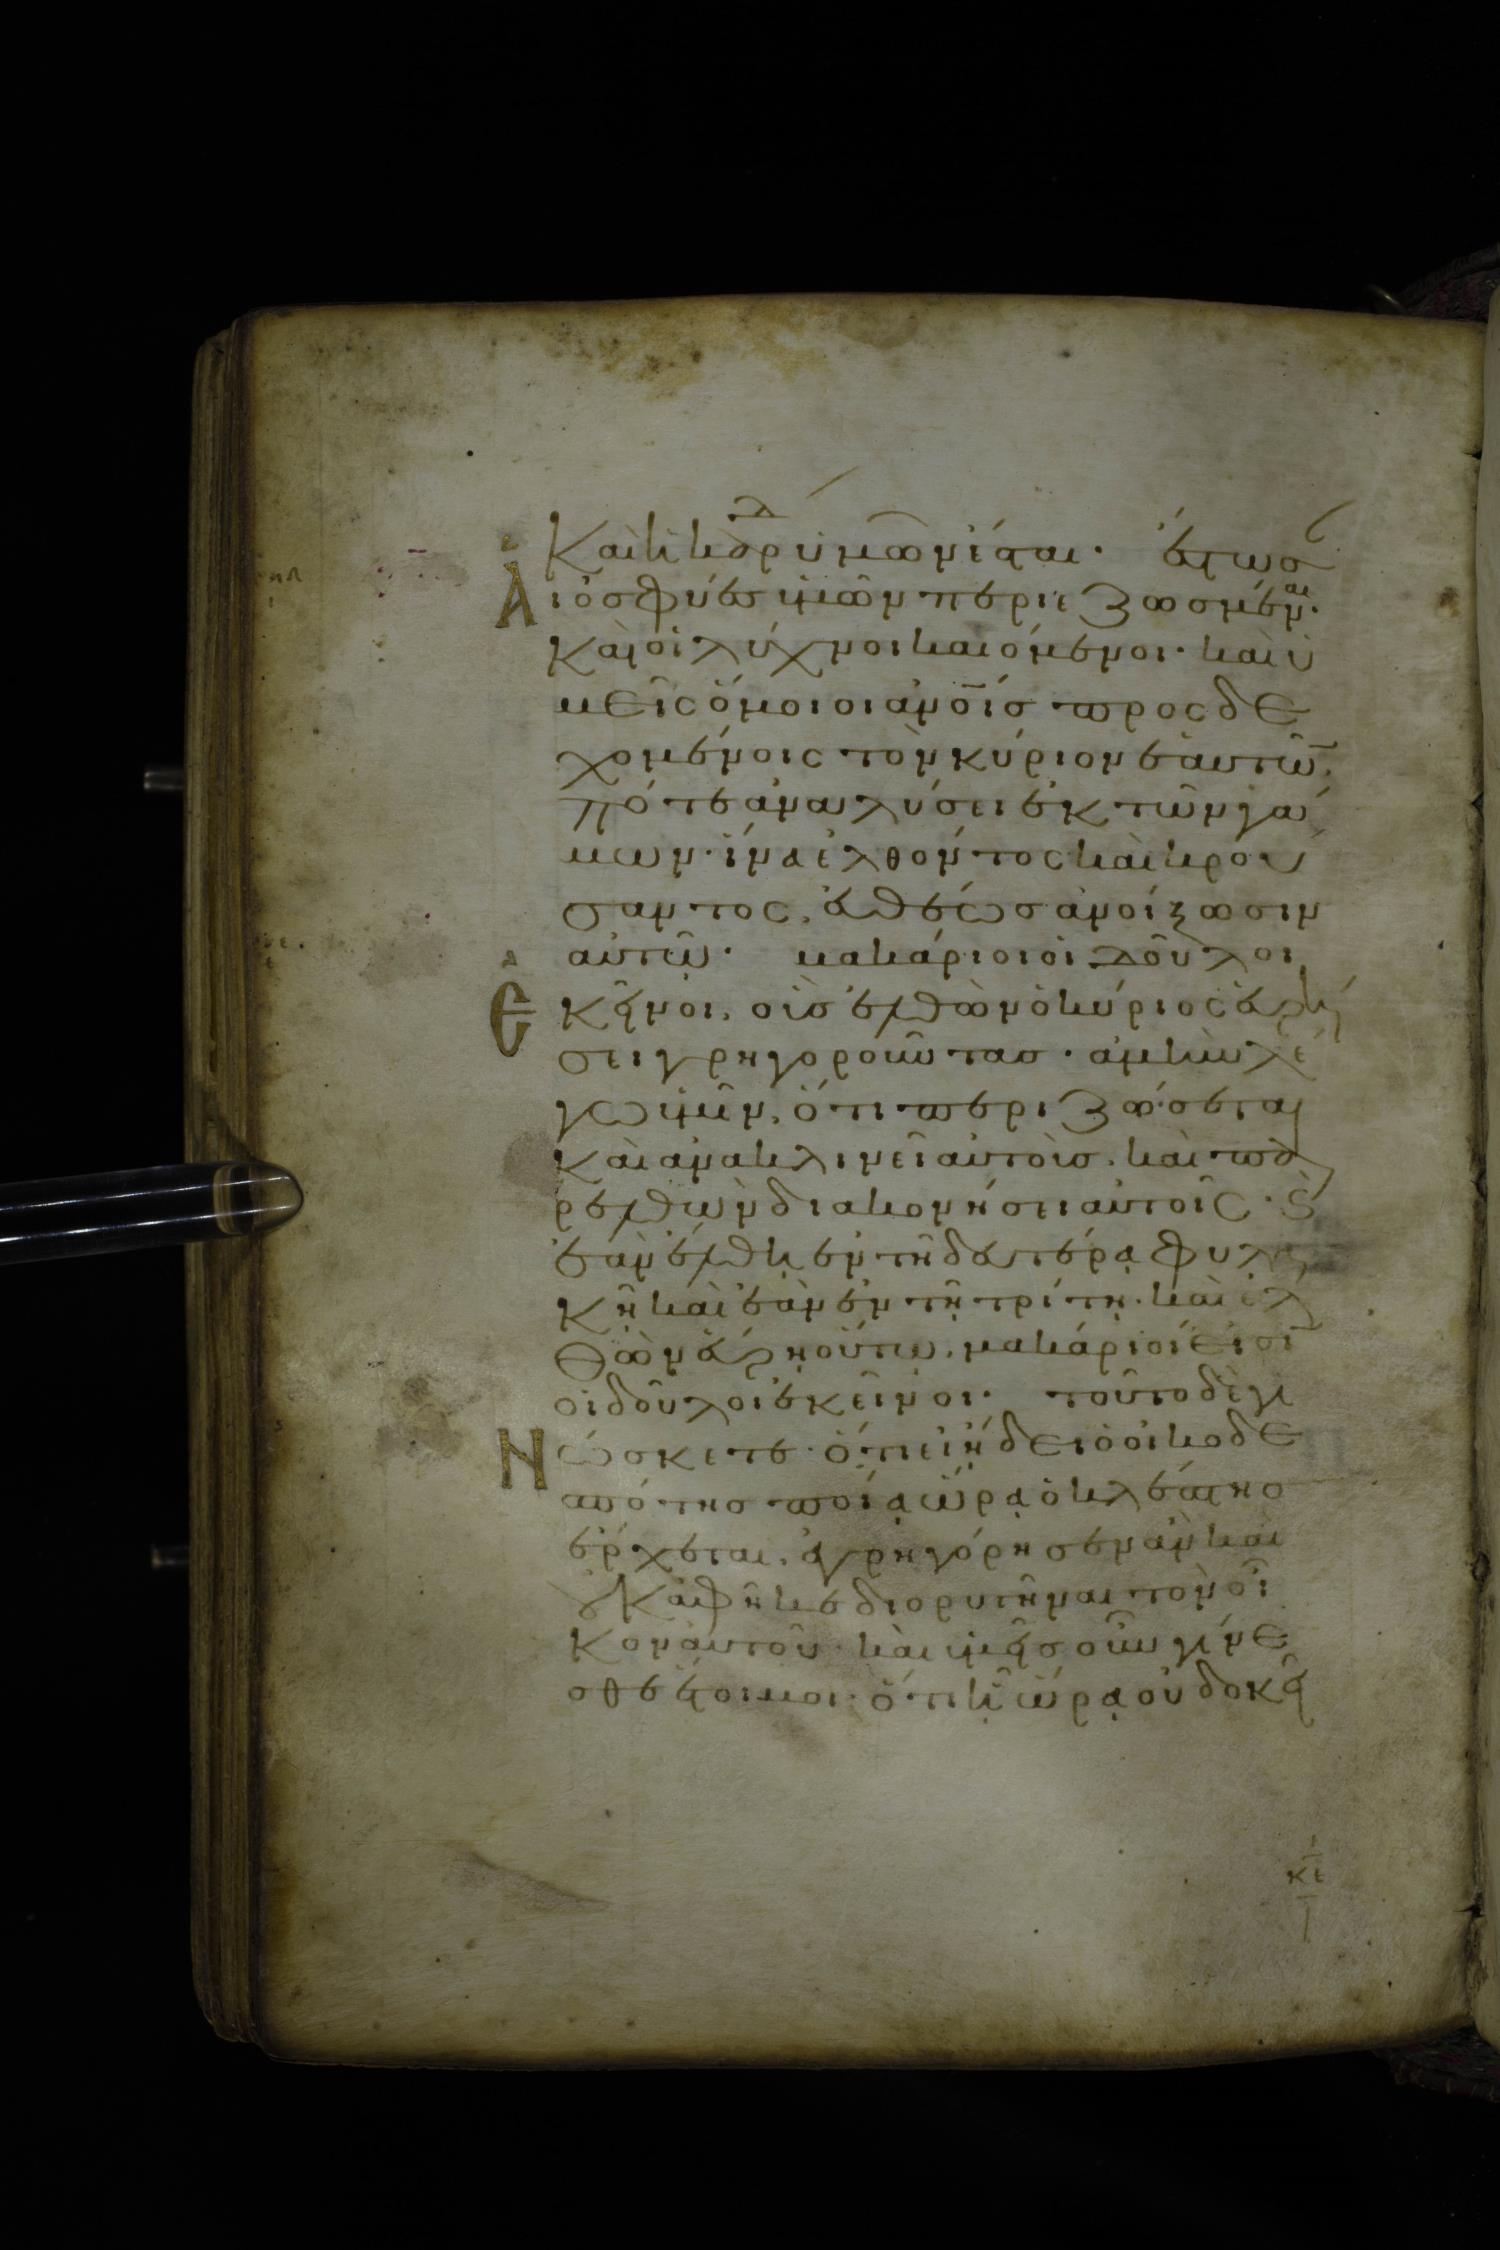 Και ἡ καρδ ὑμῶν ἔσται· ἔστωσ
Αι ὀσφύες ὑμῶν περιεζωσμέναι·
Καὶ οἱ λύχνοι καιόμενοι· καὶ ὑ
μεῖς ὅμοιοι ἀνοῖσ προσδε
χομένοις τὸν κύριον ἑαυτῶ̅,
πότε ἀναλύσει ἐκ τῶν γά
μων· ἵνα ἐλθόντος καὶ κρού
σαντος, εὐθέωσ ἀνοίξωσιν
αὐτῶ· μακάριοι οἱ δοῦλοι
Εκεῖνοι, οὓσ ἐλθὼν ὁ κύριος εὑρή
σει γρηγοροῦντασ· ἀμὴν λέ
γω ὑμῖν, ὅτι περιζώσεται
Καὶ ἀνακλινεῖ αὐτοὺσ, καὶ πα
ρελθὼν διακονήσει αὐτοῖς· Καὶ
ἐὰν ἔλθη ἐν τῆ δευτέρα φυλα
Κῆ καὶ ἐὰν ἐν τῆ τρίτη· καὶ ἐλ
Θὼν εὕρη οὕτω, μακάριοι εἰσὶ
οἱ δοῦλοι ἐκεῖνοι· τοῦτο δὲ γι
Νώσκετε· ὅτι εἰ ἤδει ὁ οἰκοδε
σπότησ ποία ὥρα ὁ κλέπτησ
ἔρχεται, ἐγρηγόρησεν ἂν καὶ
οὐκ ἀφῆκε διορυγῆναι τὸν οἶ
Κον αὐτοῦ· καὶ ὑμεῖσ οὖν γίνε
σθε ἕτοιμοι· ὅτι ἧ ὥρα οὐ δοκεῖ
κε